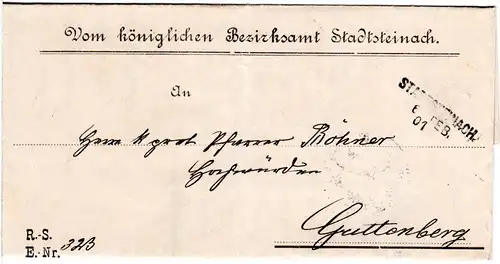 Vom königlichen Bezirksamt Stadtsteinach.
An
STADTSTEINACH.
6 FEB
01
Herrn k prot Pfarrer Böhner
Hochwürden
Guttenberg
R.-S.
E.-Nr. 323